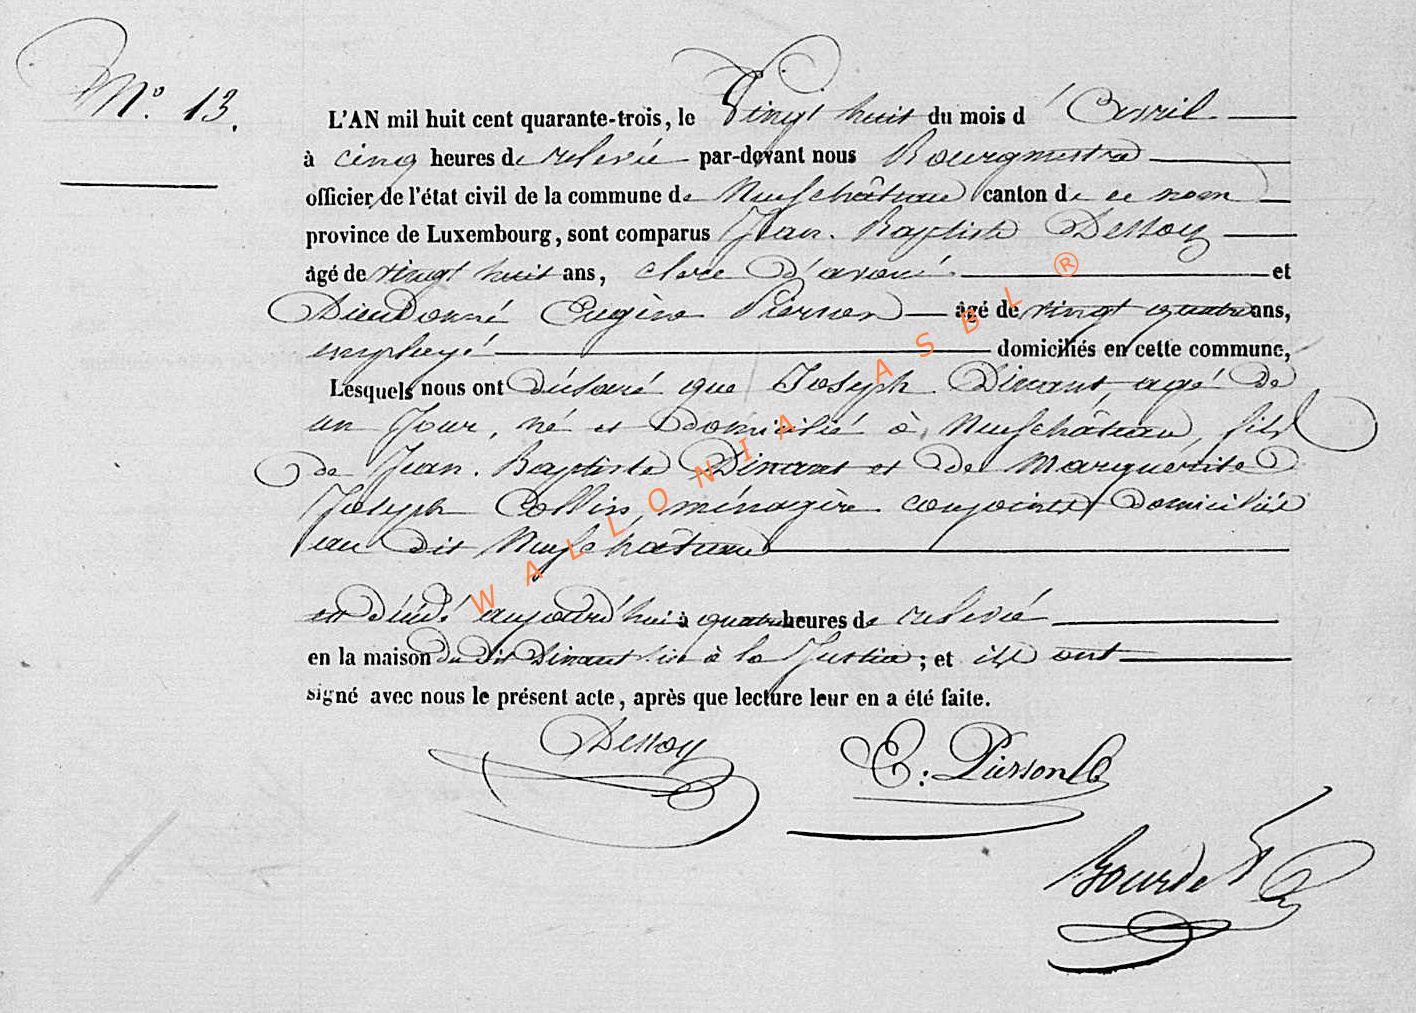 N° 13.
L'AN mil huit cent quarante-trois, le Vingt huit du mois d'Avril
à cinq heures de relevée par-devant nous Bourgmestre
officier de l'état civil de la commune de Neufchâteau canton de ce nom
province de Luxembourg, sont comparus Jean-Baptiste Dessoy
âgé de vingt huit ans, clerc d'avoué et
Dieudonné Eugène Pierson âgé de vingt quatre ans,
employé domiciliés en cette commune,
Lesquels nous ont déclaré que Joseph Dinant, agé de
un Jour, né et domicilié à Neufchâteau, fils
de Jean-Baptiste Dinant et de Marguerite
Joseph Collin, ménagère conjoints domiciliés
au dit Neufchâteau
est décédé aujourd'hui à quatre heures de relevée
en la maison du dit Dinant sise à la Justice; et ils ont
signé avec nous le présent acte, après que lecture leur en a été faite.
Dessoy
E: Pierson
Bourdet
WALLONIA ASBL ®